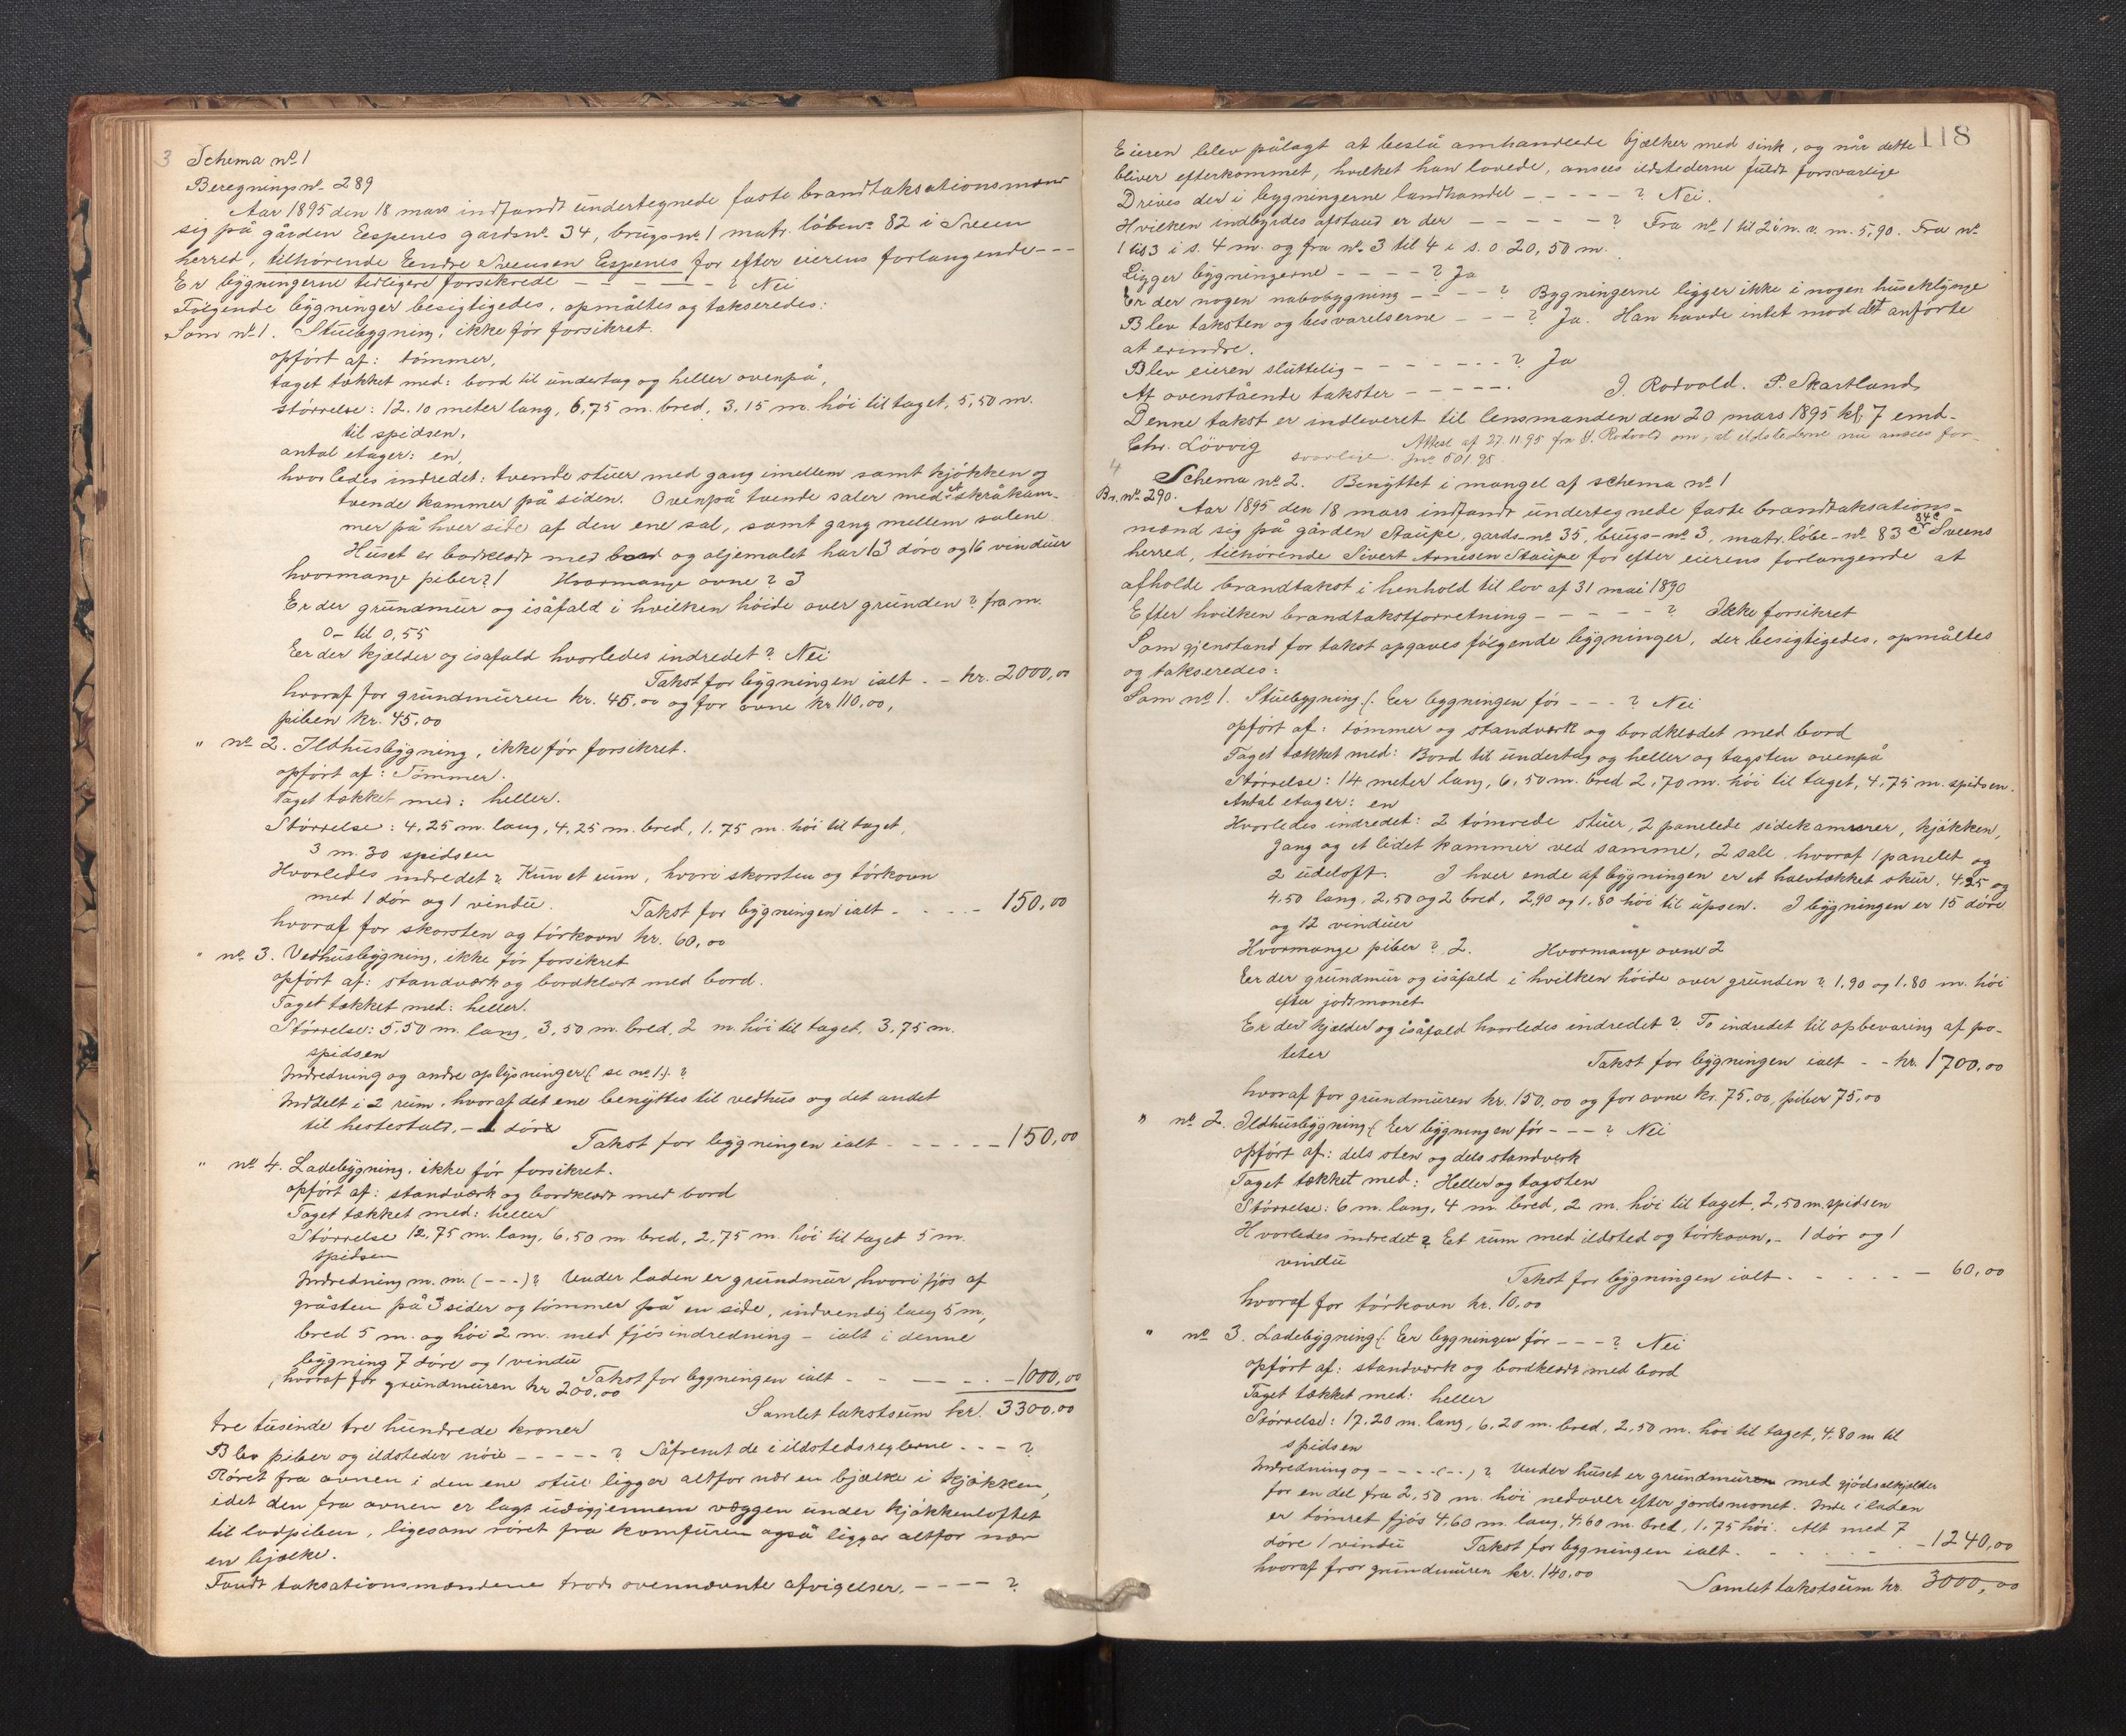 3 Schema no 1
Beregningsno 289
Aar 1895 den 18 mars indfandt undertegnede faste brandtaksationsmænd
sig på gården Eespenes gardsno 34, brugs-no 1 matr. löbeno 82 i Sveen
herred, tilhörende Eendre Svensen Eespenes for efter eierens forlangende - - -
Er bygningerne tidligere forsikrede - - - - - ? Nei
Fölgende bygninger besigtigedes, opmåltes og takseredes:
Som no 1. Stuebygning, ikke för forsikret.
opfört af: tömmer,
taget tækket med: bord til undertag og heller ovenpå,
störrelse: 12.10 meter lang, 6,75 m. bred, 3.15 m. höi til taget, 5,50 m.
til spidsen,
antal etager: en,
hvorledes indredet: tvende stuer med gang imellem samt kjökken og
tvende kammer på siden. Ovenpå tvende saler med et skråkam-
mer på hver side af den ene sal, samt gang mellem salene
Huset er bordklædt med bord og oljemalet har 13 döre og 16 vinduer
hvormange piber? 1 Hvormange ovne? 3
Er der grundmur og isåfald i hvilken höide over grunden? fra m.
0 - til 0,55
Eer der kjælder og isafald hvorledes indredet? Nei
Takst for bygningen ialt - - kr. 2000,00
hvoraf for grundmuren kr. 45,00 og for ovne kr 110,00,
piben kr. 45,00
" no 2. Ildhusbygning, ikke för forsikret.
opfört af: Tömmer.
Taget tækket med: heller.
Störrelse: 4,25 m. lang, 4,25 m. bred, 1,75 m. höi til taget,
3 m. 30 spidsen
Hvorledes indredet? Kun et rum, hvori skorsten og törkovn
med 1 dör og 1 vindu. Takst for bygningen ialt - - - - 150,00
hvoraf for skorsten og törkovn kr. 60,00
" no 3. Vedhusbygning, ikke för forsikret
opfört af: standværk og bordklædt med bord.
Taget tækket med: heller.
Störrelse: 5,50 m. lang, 3,50 m. bred, 2 m. höi til taget, 3,75 m.
spidsen
Indredning og andre oplysninger (se no 1)?
Inddelt i 2 rum, hvoraf det ene benyttes til vedhus og det andet
til hestestald, - 1 döre
Takst for bygningen ialt - - - - - 150,00
" no 4. Ladebygning, ikke för forsikret.
opfört af: standværk og bordklædt med bord
Taget tækket med: heller
Störrelse 12,75 m. lang, 6,50 m bred, 2,75 m. höi til taget 5 m.
spidsen
Indredning m. m. (- - -)? Under laden er grundmur hvori fjös af
gråsten på 3 sider og tömmer på en side, indvendig lang 5 m,
bred 5 m. og höi 2 m. med fjösindredning - ialt i denne
bygning 7 döre og 1 vindu
Takst for bygningen ialt - - - - - 1000,00
hvoraf for grundmuren kr 200,00
Samlet takstsum kr. 3300,00
tre tusinde tre hundrede kroner
Blev piber og ildsteder nöie - - - - - ? Såfremt de i ildstedsreglerne - - - ?
Röret fra ovnen i den ene stue ligger altfor nær en bjælke i kjökken,
idet den fra ovnen er lagt udigjennem væggen under kjökkenloftet
til lodpiben, ligesom röret fra komfuren også ligger altfor nær
en bjælke.
Fandt taksationsmændene trods ovennævnte afvigelser, - - - - ?
118
Eieren blev pålagt at beslå omhandlede bjælker med sink, og når dette
bliver efterkommet, hvilket han lovede, ansees ildstederne fuldt forsvarlige
Drives der i bygningerne landhandel - - - - - ? Nei.
Hvilken indbyrdes afstand er der - - - - - ? Fra no 1 til 2 i n. v. m. 5,90. Fra no
1 til 3 i s. 4 m. og fra no 3 til 4 i s. o 20,50 m.
Ligger bygningerne - - - - ? Ja
Er der nogen nabobygning - - - - ? Bygningerne ligger ikke i nogen huseklynge
Blev taksten og besvarelserne - - - ? Ja. Han havde intet mod det anförte
at erindre.
Blev eieren sluttelig - - - - - - - ? Ja
At ovenstående takster - - - - -. J. Rodvold. P. Skartland
Denne takst er indleveret til lensmanden den 20 mars 1895 kl. 7 emd.
Chr. Lövvig Attest af 27.11.95 fra J. Rodvold om, at ildstederne nu ansees for-
svarlige. Jno 501.95
4 Schema no 2. Benyttet i mangel af schema no 1
Br. no 290. Aar 1895 den 18 mars indfandt undertegnede faste brandtaksations-
mænd sig på gården Staupe, gards-no 35, brugs-no 3, matr. löbe-no 83 c 84c Sveens
herred, tilhörende Sivert Arnesen Staupe for efter eierens forlangende at
afholde brandtakst i henhold til lov af 31 mai 1890
Efter hvilken brandtakstforretning - - - - - ? Ikke forsikret
Som gjenstand for takst opgaves fölgende bygninger, der besigtigedes, opmåltes
og takseredes:
Som no 1. Stuebygning (Eer bygningen för - - - ? Nei
opfört af: tömmer og standværk og bordklædet med bord
Taget tækket med: Bord til undertag og heller og tagsten ovenpå
Störrelse: 14 meter lang, 6,50 m. bred 2,70 m. höi til taget, 4,75 m. spidsen.
Antal etager: en
Hvorledes indredet: 2 tömrede stuer, 2 panelede sidekammerer, kjökken,
gang og et lidet kammer ved samme, 2 sale, hvoraf 1 panelet og
2 udeloft. I hver ende af bygningen er et halvtækket skur, 4,25 og
4,50 lang, 2,50 og 2 bred, 2,90 og 1,80 höi til upsen. I bygningen er 15 döre
og 12 vinduer
Hvormange piber? 2. Hvormange ovne 2
Eer der grundmur og isåfald i hvilken höide over grunden? 1,90 og 1,80 m. höi
efter jordsmonet
Er der kjælder og isåfald hvorledes indredet? To indredet til opbevaring af po-
teter Takst for bygningen ialt - - kr. 1700,00
hvoraf for grundmuren kr. 150,00 og for ovne kr. 75,00, piber 75,00
" no 2. Ildhusbygning (Eer bygningen för - - - ? Nei
opfört af: dels sten og dels standverk
Taget tækket med: Heller og tagsten
Störrelse: 6 m. lang, 4 m. bred, 2 m. höi til taget, 2,50 m. spidsen
Hvorledes indredet? Eet rum med ildsted og törkovn, - 1 dör og 1
vindu
Takst for bygningen ialt - - - - - 60,00
hvoraf for törkovn kr. 10,00
" no 3. Ladebygning (Eer bygningen för - - - ? Nei
opfört af: standværk og bordklædt med bord
Taget tækket med: heller
Störrelse: 17,20 m. lang, 6,20 m. bred, 2,50 m. höi til taget, 4,80 m til
spidsen
Indredning og - - - - (- -)? Under huset er grundmuren med gjödselkjælder
for en del fra 2,50 m. höi nedover efter jordsmonet. Inde i laden
er tömret fjös 4,60 m. lang, 4,60 m. bred, 1,75 höi. Alt med 7
döre 1 vindu Takst for bygningen ialt - - - - - 1240,00
hvoraf fror grundmuren kr. 140,00
Samlet takstsum kr. 3000,00